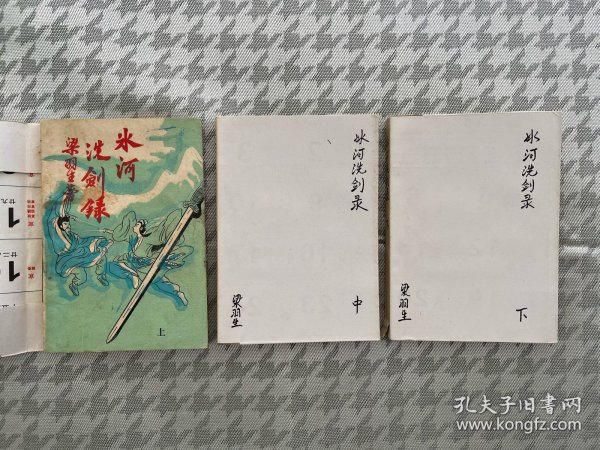 冰河
洗劍錄
梁羽生著
上
冰河洗剑录
梁羽生
中
冰河洗剑录
梁羽生
下
孔夫子旧书网
www.kongfz.com